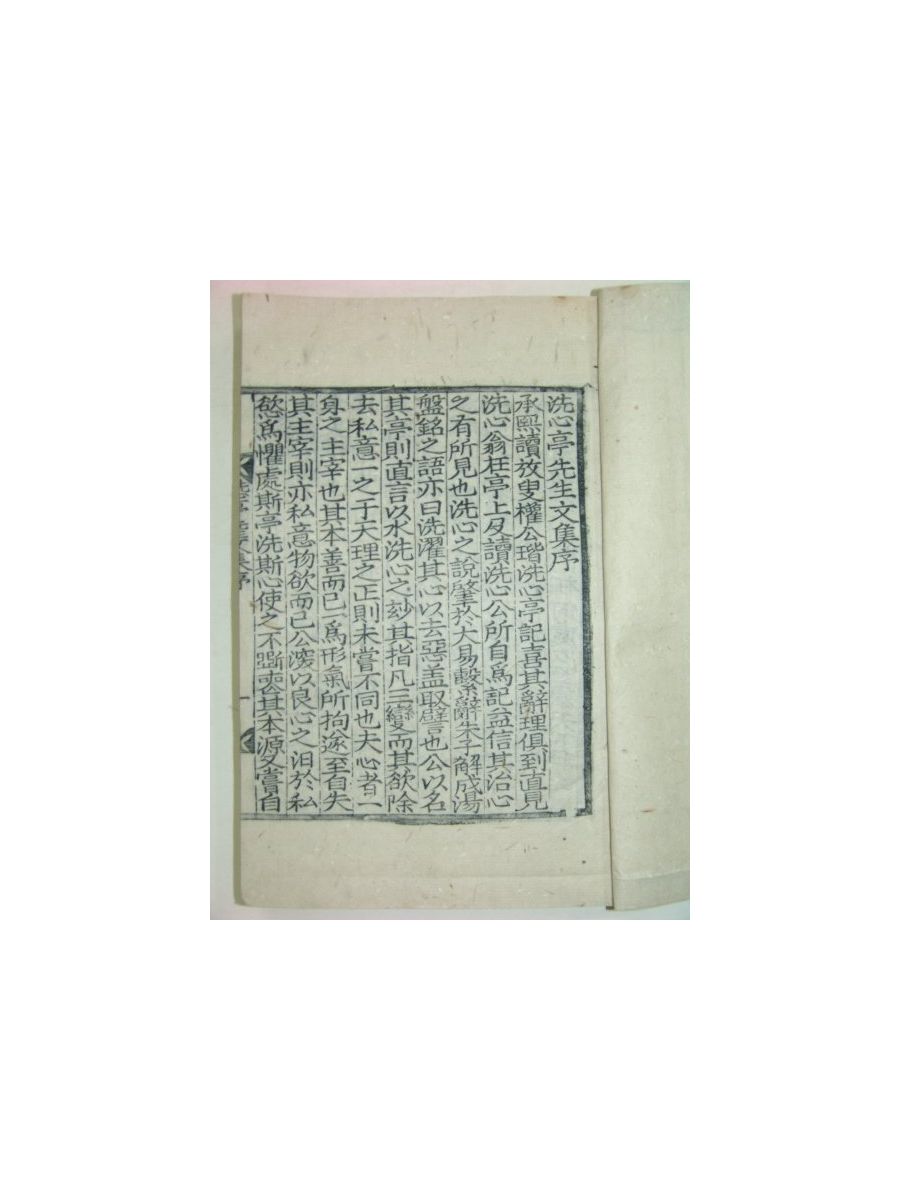 洗心亭先生文集序
承熙讀放叟權公瑎洗心亭記喜其辭理俱到直見
洗心翁在亭上及讀洗心公所自爲記益信其治心
之有所見也洗心之說肇於大易繫辭朱子解成湯
盤銘之語亦曰洗濯其心以去惡盖取譬也公以名
其亭則直言以水洗心之玅其指凡三變而其欲除
去私意一之于天理之正則未嘗不同也夫心者一
身之主宰也其本善而已一爲形氣所拘遂至自失
其主宰則亦私意物欲而已公深以良心之汩於私
慾爲懼處斯亭洗斯心使之不斲喪其本源又嘗自
集序
一